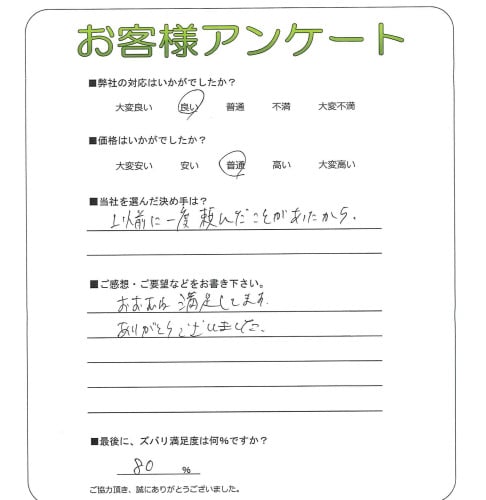 お客様アンケート
■弊社の対応はいかがでしたか？
大変良い 良い 普通 不満 大変不満
■価格はいかがでしたか？
大変安い 安い 普通 高い 大変高い
■当社を選んだ決め手は？
以前に一度頼んだことがあたから.
■ご感想・ご要望などをお書き下さい。
おおむね満足してます.
ありがとうございました.
■最後に、ズバリ満足度は何%ですか？
80 %
ご協力頂き、誠にありがとうございました。